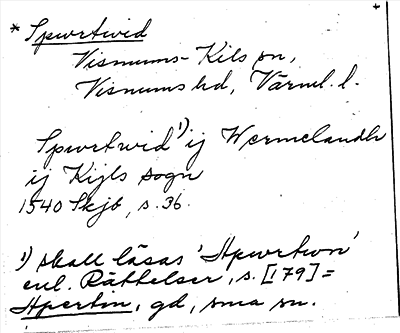 * Spwrtwid +
Visnums-Kils sn,
Visnums hd, Värml. l.
Spwrtwid¹⁾ ij Wermelandh
ij Kijls sogn
1540 Skjb, s. 36.
¹⁾ skall läsas 'Hpwrtwn'
enl. Rättelser, s. [179] =
Hpertin, gd, sma sn.